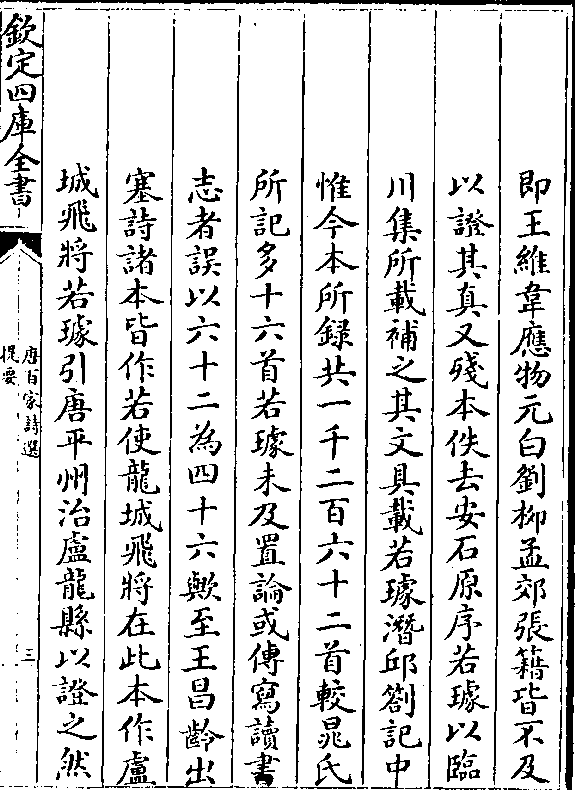 即王維韋應物元白劉柳孟郊張籍皆不及
以證其真又殘本佚去安石原序若璩以臨
川集所載補之其文具載若璩潛邱劄記中
惟今本所録共一千二百六十二首較晁氏
所記多十六首若璩未及置論或傳寫讀書
志者誤以六十二為四十六歟至王昌齡出
塞詩諸本皆作若使龍城飛將在此本作盧
城飛將若璩引唐平州治盧龍縣以證之然
欽定四庫全書
唐百家詩選
提要
三